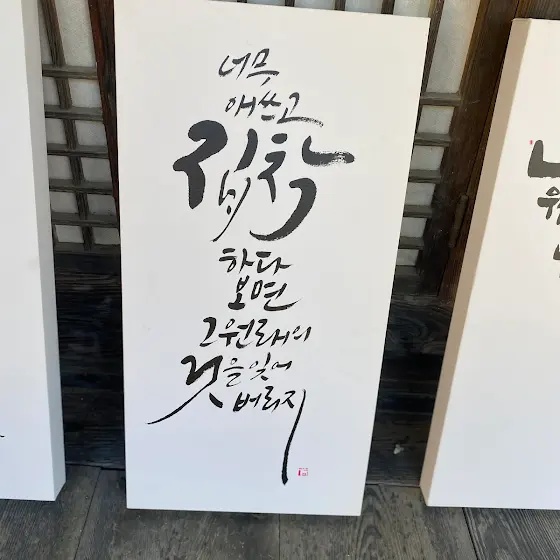 너무
애쓰고
집착
하다
보면
그 원래의
것을 잊어
버리지